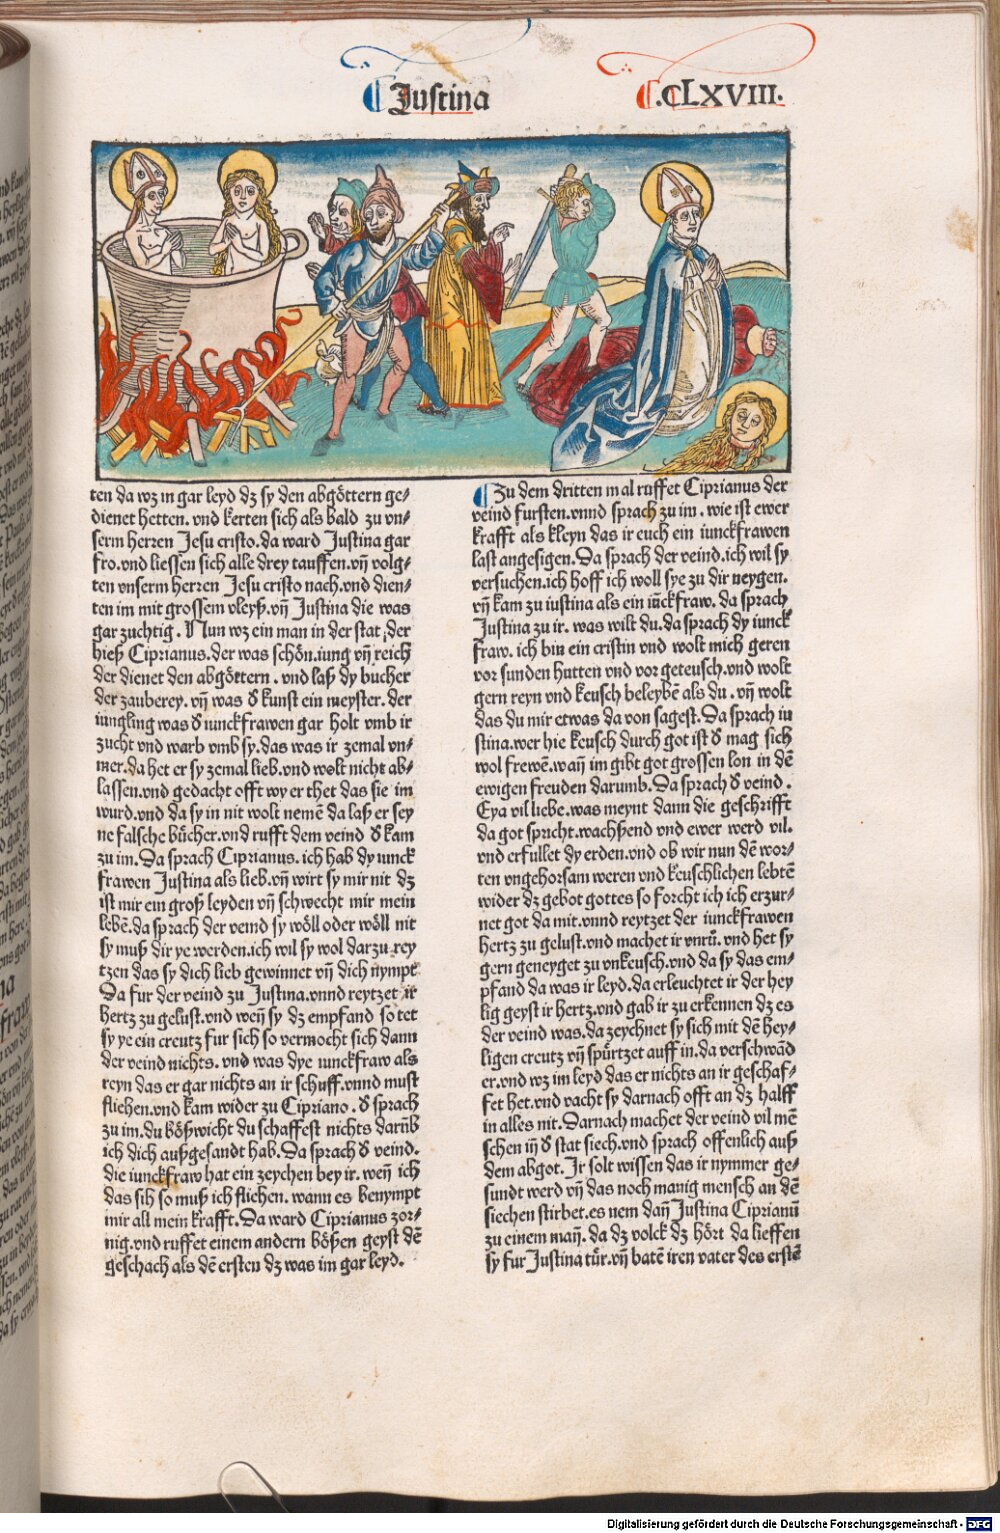 Justina
.CCLXVIII.
ten da wz in gar leyd dz sy den abgöttern ge⸗
dienet hetten. vnd kerten sich als bald zu vn⸗
serm herren Jesu cristo. da ward Justina gar
fro. vnd liessen sich alle drey tauffen. vn̄ volg⸗
ten vnserm herren Jesu cristo nach. vnd dien⸗
ten im mit grossem vleyß. vn̄ Justina die was
gar zuchtig. Nun wz ein man in der stat, der
hieß Ciprianus. der was schön. iung vn̄ reich
der dienet den abgöttern. vnd laß dy bucher
der zauberey. vn̄ was d̕ kunst ein meyster. der
iungling was d̕ iunckfrawen gar holt vmb ir
zucht vnd warb vmb sy. das was ir zemal vn⸗
mer. da het er sy zemal lieb. vnd wolt nicht ab⸗
lassen. vnd gedacht offt wy er thet das sie im
wurd. vnd da sy in nit wolt nemē da laß er sey
ne falsche bücher. vnd rufft dem veind d̕ kam
zu im. Da sprach Ciprianus. ich hab dy iunck
frawen Justina als lieb. vn̄ wirt sy mir nit dz
ist mir ein groß leyden vn̄ schwecht mir mein
lebē. da sprach der veind sy wöll oder wöll nit
sy muß dir ye werden. ich wil sy wol darzu rey
tzen das sy dich lieb gewinnet vn̄ dich nympt
Da fur der veind zu Justina. vnnd reytzet ir
hertz zu gelust. vnd wen̄ sy dz empfand so tet
sy ye ein creutz fur sich so vermocht sich dann
der veind nichts. vnd was dye iunckfraw als
reyn das er gar nichts an ir schuff. vnnd must
fliehen. vnd kam wider zu Cipriano. d̕ sprach
zu im. du bößwicht du schaffest nichts darūb
ich dich außgesandt hab. Da sprach d̕ veind.
die iunckfraw hat ein zeychen bey ir. wen̄ ich
das sih so muß ich fliehen. wann es benympt
mir all mein krafft. Da ward Ciprianus zor⸗
nig. vnd ruffet einem andern bößen geyst dē
geschach als dē ersten dz was im gar leyd.
Zu dem dritten mal ruffet Ciprianus der
veind fursten. vnnd sprach zu im. wie ist ewer
krafft als kleyn das ir euch ein iunckfrawen
last angesigen. Da sprach der veind. ich wil sy
versuchen. ich hoff ich woll sye zu dir neygen.
vn̄ kam zu iustina als ein iūckfraw. da sprach
Justina zu ir. was wilt du. da sprach dy iunck
fraw. ich bin ein cristin vnd wolt mich geren
vor sunden hutten vnd vor geteusch. vnd wolt
gern reyn vnd keusch beleybē als du. vn̄ wolt
das du mir etwas da von sagest. Da sprach iu
stina. wer hie keusch durch got ist d̕ mag sich
wol frewē. wan̄ im gibt got grossen lon in dē
ewigen freuden darumb. Da sprach d̕ veind.
Eya vil liebe. was meynt dann die geschrifft
da got spricht. wachßend vnd ewer werd vil.
vnd erfullet dy erden. vnd ob wir nun dē wor⸗
ten vngehorsam weren vnd keuschlichen lebtē
wider dz gebot gottes so forcht ich ich erzur⸗
net got da mit. vnnd reytzet der iunckfrawen
hertz zu gelust. vnd machet ir vnrū. vnd het sy
gern geneyget zu vnkeusch. vnd da sy das em⸗
pfand da was ir leyd. da erleuchtet ir der hey
lig geyst ir hertz. vnd gab ir zu erkennen dz es
der veind was. da zeychnet sy sich mit dē hey⸗
ligen creutz vn̄ spürtzet auff in. da verschwād
er. vnd wz im leyd das er nichts an ir geschaf⸗
fet het. vnd vacht sy darnach offt an dz halff
in alles nit. Darnach machet der veind vil mē
schen in̄ d̕ stat siech. vnd sprach offenlich auß
dem abgot. Ir solt wissen das ir nymmer ge⸗
sundt werd vn̄ das noch manig mensch an dē
siechen stirbet. es nem dan̄ Justina Ciprianū
zu einem man̄. da dz volck dz hört da lieffen
sy fur Justina tür. vn̄ batē iren vater des erstē
Digitalisierung gefördert durch die Deutsche Forschungsgemeinschaft - DFG